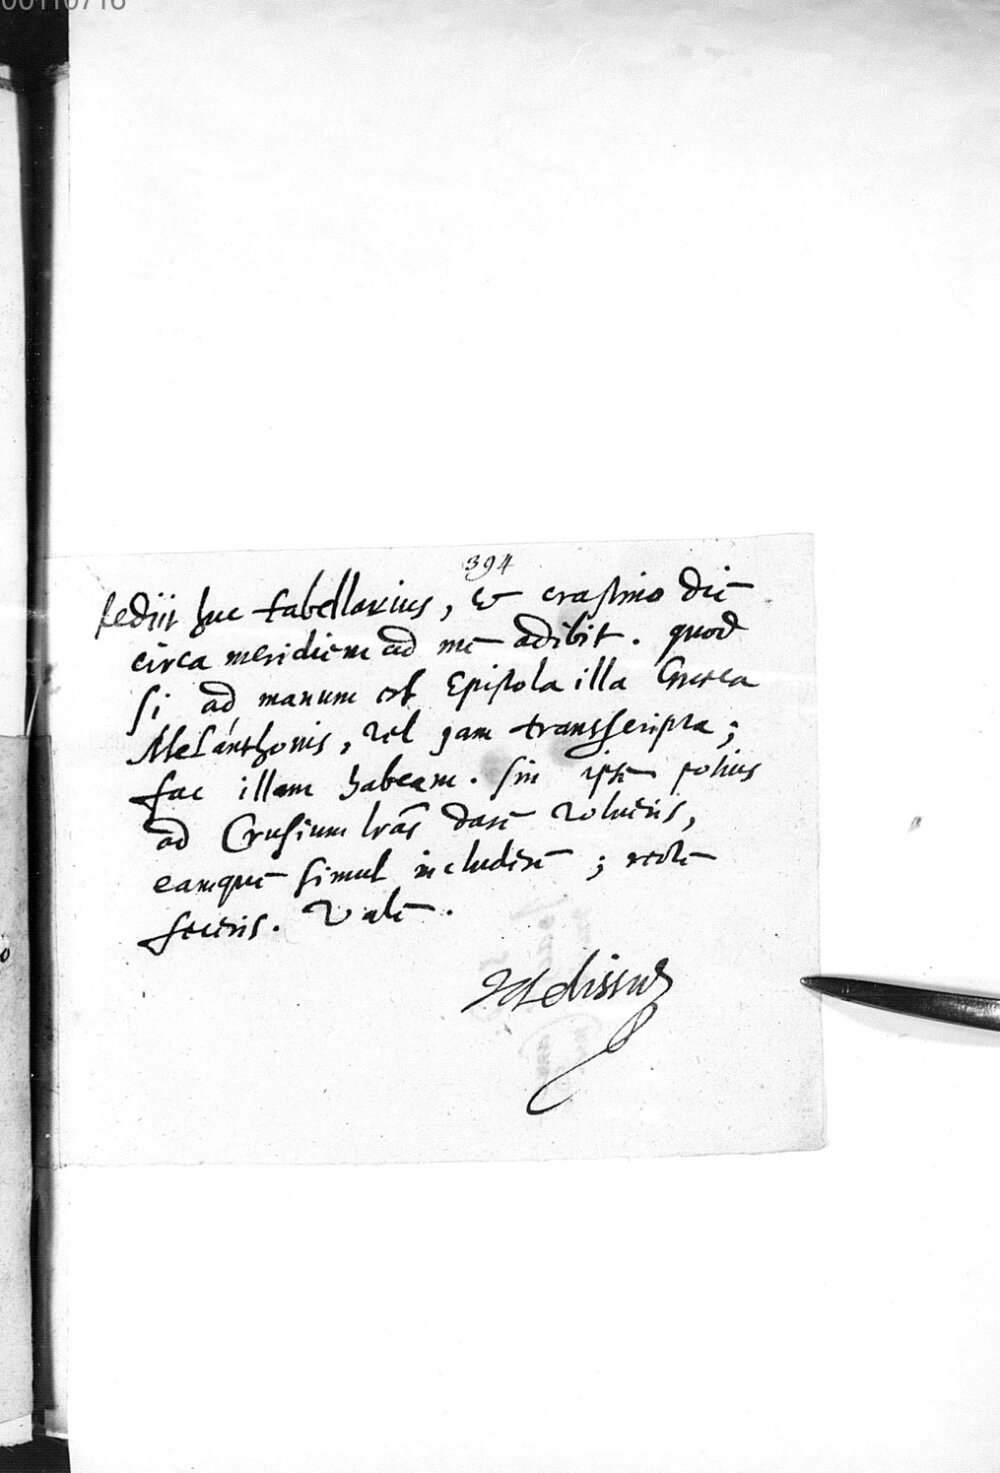 00110716
394
Rediit huc tabellarius, & crastino die
circa meridiem ad me adibit. quod
si ad manum est Epistola illa Græca
Melanthonis, vel jam transscripta;
fac illam habeam. sin ipse potius
ad Crusium lras dare volueris,
eamque simul includere; recte
feceris. Vale.
Melissus